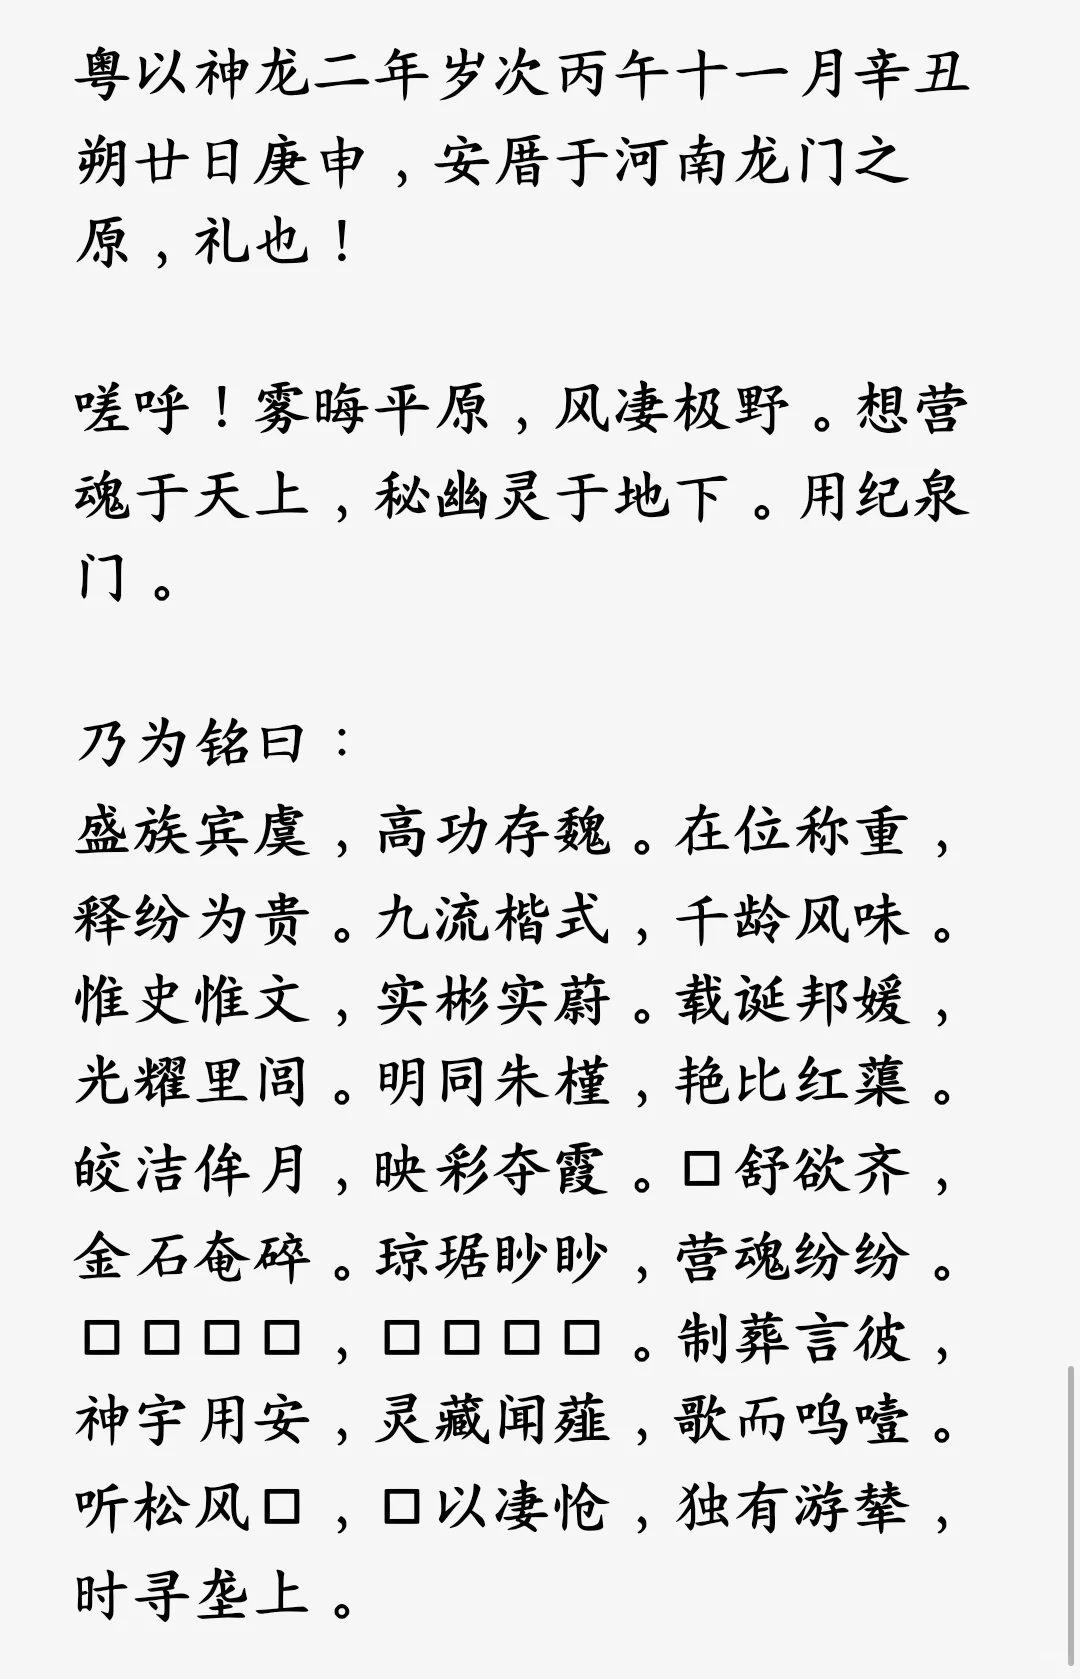 粤以神龙二年岁次丙午十一月辛丑
朔廿日庚申，安厝于河南龙门之
原，礼也！
嗟呼！雾晦平原，风凄极野。想营
魂于天上，秘幽灵于地下。用纪泉
门。
乃为铭曰：
盛族宾虞，高功存魏。在位称重，
释纷为贵。九流楷式，千龄风味。
惟史惟文，实彬实蔚。载诞邦媛，
光耀里闾。明同朱槿，艳比红蕖。
皎洁侔月，映彩夺霞。□舒欲齐，
金石奄碎。琼琚眇眇，营魂纷纷。
□□□□，□□□□。制葬言彼，
神宇用安，灵藏闻薤，歌而呜噎。
听松风□，□以凄怆，独有游辇，
时寻垄上。